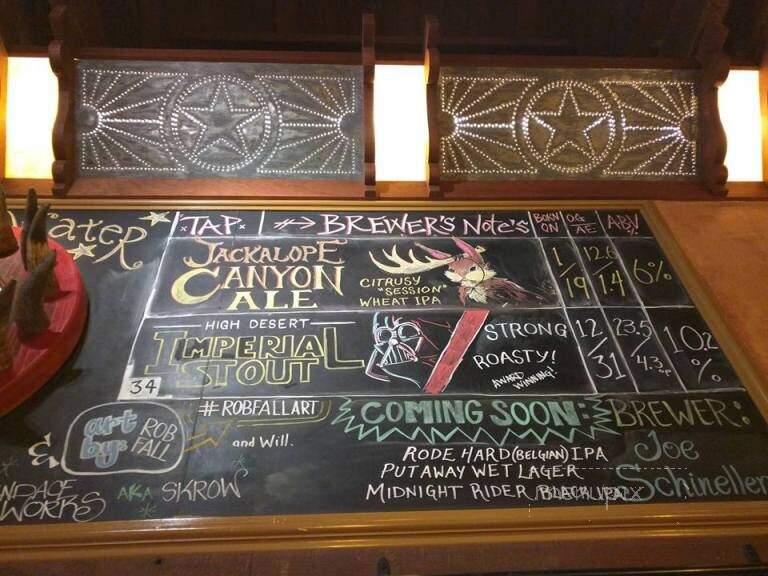 TAP BREWER'S NOTE'S BORN ON OG AE ABV %
JACKALOPE
CANYON
ALE
CITRUSY
"SESSION"
WHEAT IPA
1/19 12.6/14 6%
HIGH DESERT
IMPERIAL
STOUT
STRONG
ROASTY!
AWARD WINNING!
12/31 23.5/4.3 10.2%
34
#ROBFALLART
and Will.
& art by: ROB FALL
AKA SKROW
COMING SOON:
RODE HARD (BELGIAN) IPA
PUT AWAY WET LAGER
MIDNIGHT RIDER BLACK IPA
BREWER:
Joe
Schineller